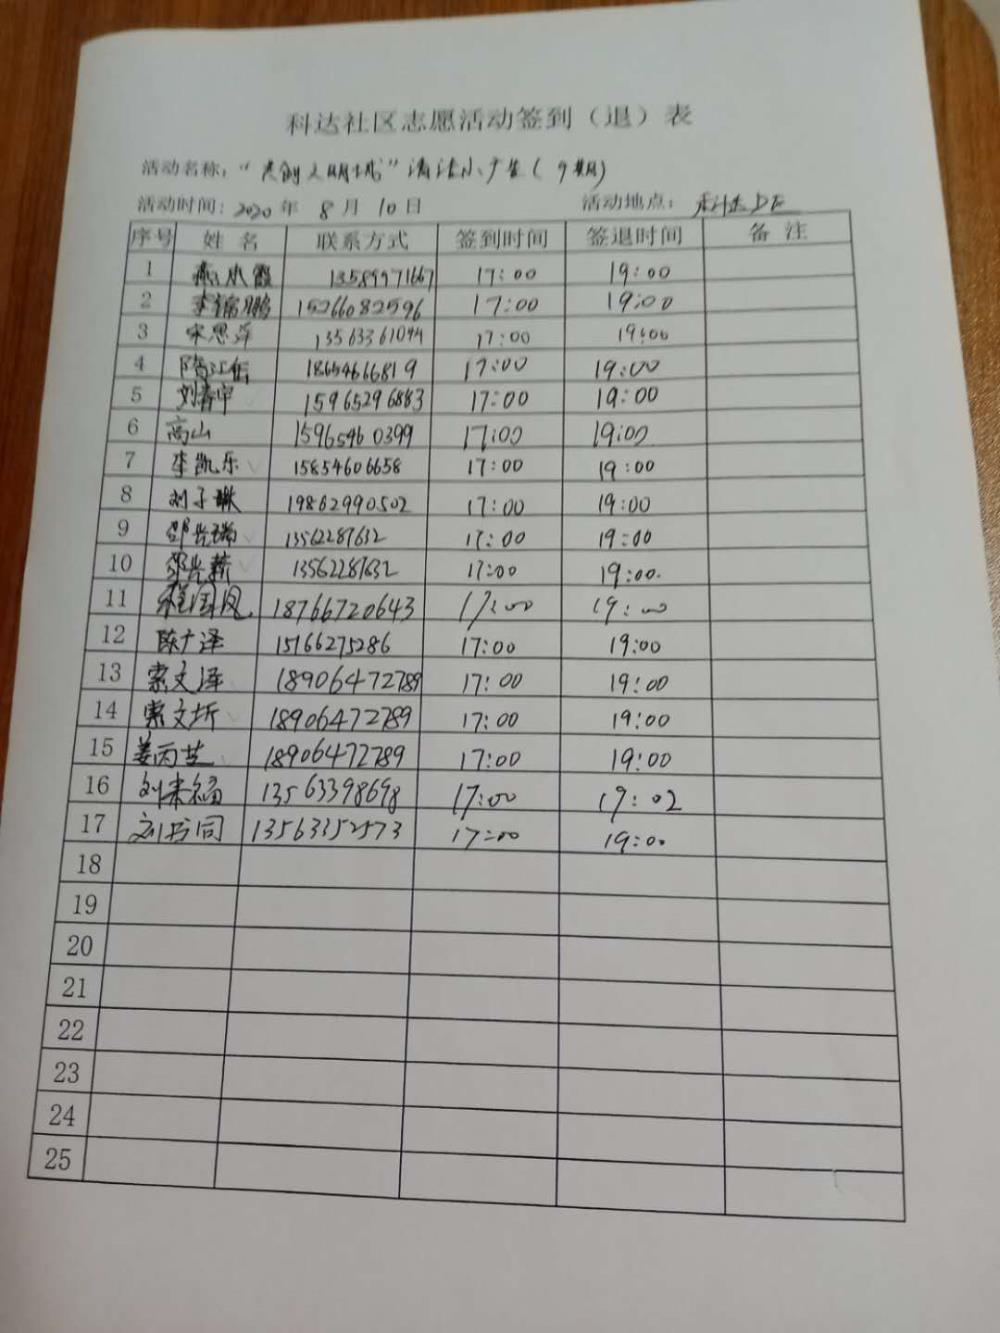 科达社区志愿活动签到（退）表
活动名称：“共创文明城”清洁小卫生（9期）
活动时间：2020年 8月 10日 活动地点：科达社区
序号 姓名 联系方式 签到时间 签退时间 备注
1 13589971667 17:00 19:00
2 李锦鹏 15266082596 17:00 19:00
3 宋思萍 13563361094 17:00 19:00
4 隋江岳 18654666819 17:00 19:00
5 刘春宇 15965296883 17:00 19:00
6 高山 15965460399 17:00 19:00
7 李凯乐 15854606658 17:00 19:00
8 刘子琳 19862990502 17:00 19:00
9 邵长瑞 13562287632 17:00 19:00
10 13562287632 17:00 19:00.
11 程国凤 18766720643 17:00 19:00
12 陈广泽 15166275286 17:00 19:00
13 索文泽 18906472789 17:00 19:00
14 索文圻 18906472789 17:00 19:00
15 姜丙芝 18906472789 17:00 19:00
16 刘来福 13563398698 17:00 19:02
17 刘书同 13563352573 17:00 19:00
18
19
20
21
22
23
24
25